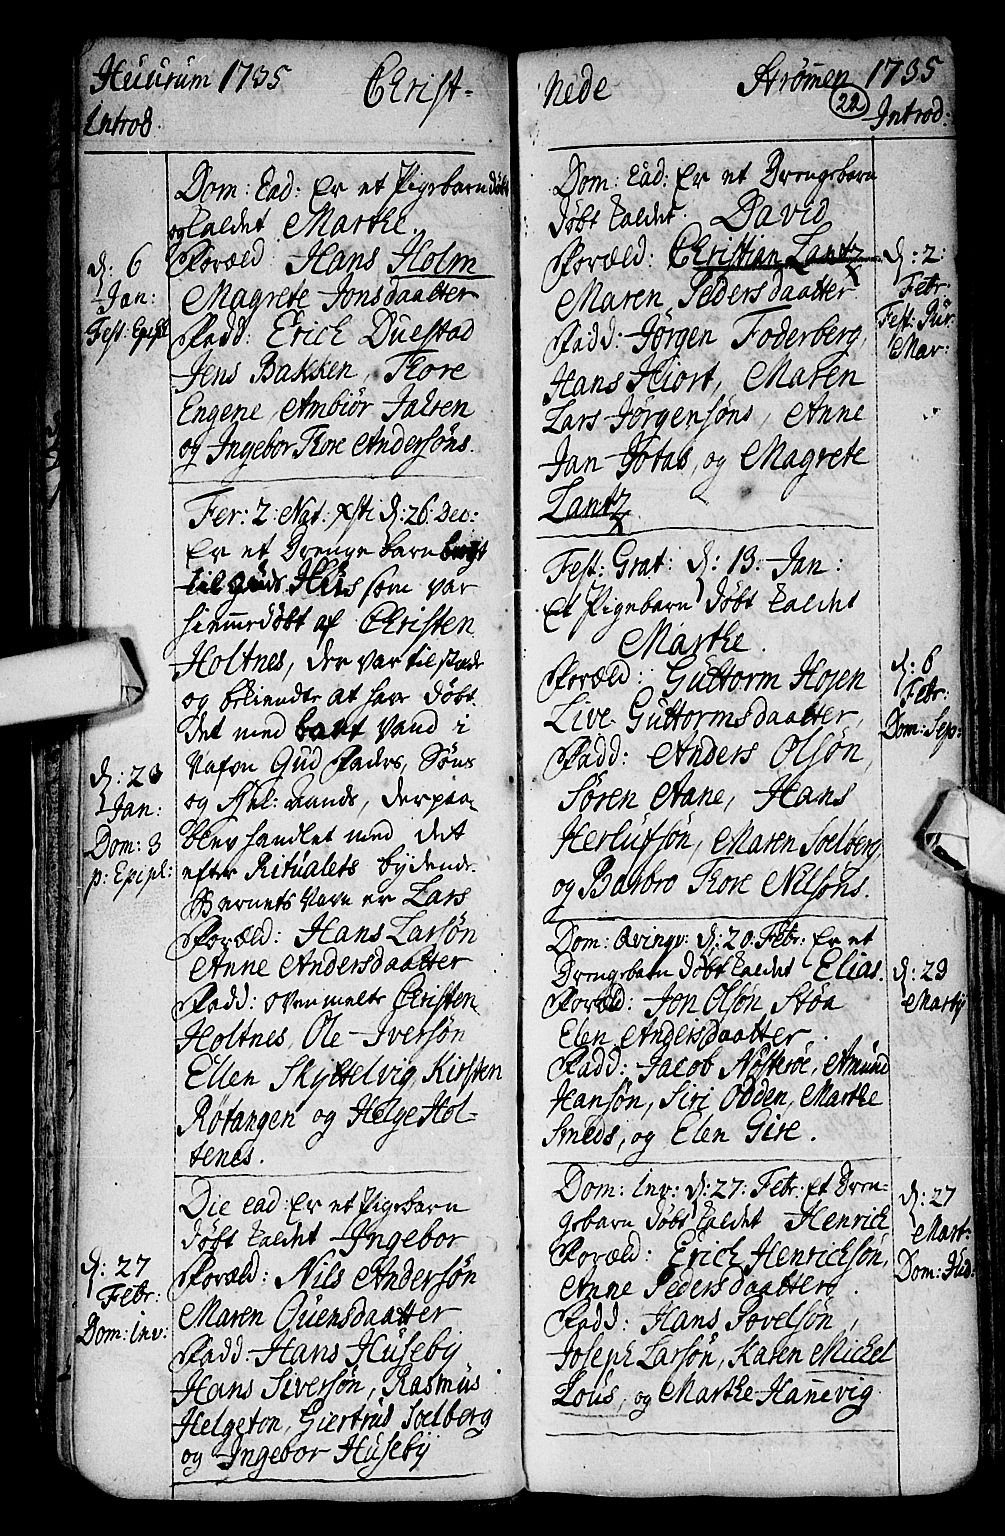 Huurum 1735 Christ-
Introd.
Dom: Ead: Er et Pigebarn døbt
og kaldet Marthe.
Foræld: Hans Holm
Magrete Jonsdaatter
Fadd: Erich Duestad
Jens Bakken, Thore
Engene, Ambiør Jalsen
og Ingebor Thore Andersøns.
d: 6
Jan:
Fest: Epiph
Fer: 2. Nat. xsti d: 26. Dec:
Er et Drengebarn bragt
til Guds Huus som var
hiemmedøbt af Christen
Holtnes, der var tilstæde
og bekiendte at have døbt
det med bart Vand i
Nafn Gud Faders, Søns
og H: Aands, derpaa
blev handlet med det
efter Ritualets bydende.
Bernets Navn er Lars
Foræld: Hans Larsøn
Anne Andersdaatter
Fadd: ovenmelte Christen
Holtnes, Ole Iversøn
Ellen Skyttelvig, Kirsten
Røtangen og Helge Hol-
tenes.
d: 23
Jan:
Dom: 3
p: Epiph:
Die ead: Er et Pigebarn
døbt kaldet Ingebor
Foræld: Nils Andersøn
Maren Ouensdaatter
Fadd: Hans Huseby
Hans Siversøn, Rasmus
Helgeton, Giertrud Solberg
og Ingebor Huseby
d: 27
Febr:
Dom: inv:
nede Strømmen 1735
22
Introd:
Dom: Ead: Er et Drengebarn
døbt kaldet David
Foræld: Christian Lantz
Maren Pedersdaatter
Fadd: Jørgen Foderberg,
Hans Hiort, Maren
Lars Jørgensøns, Anne
Jan Jotas, og Magrete
Lantz
d: 2:
Febr
Fest: Pur:
Mar:
Fest: Grat: d: 13. Jan:
Et Pigebarn døbt kaldet
Marthe.
Foræld: Guttorm Hojen
Live Guttormsdaatter,
Fadd: Anders Olsøn,
Søren Aane, Hans
Herlufsøn, Maren Solberg
og Barbro Thore Nilsøns.
d: 6
Febr:
Dom: Sep:
Dom: Qvinqv: d: 20. Febr: Er et
Drengebarn døbt kaldet Elias.
Foræld: Jon Olsøn Støa
Elen Andersdaatter.
Fadd: Jacob Nosterøe, Amund
Hansøn, Siri Odden, Marthe
Smeds, og Elen Gire.
d: 23
Martij
Dom: Inv: d: 27: Febr: Et Dren-
gebarn døbt kaldet Henrich
Foræld: Erich Henrichsøn,
Anne Pedersdaatter.
Fadd: Hans Povelsøn,
Joseph Larsøn, Karen Michel
Lous, og Marthe Hannevig.
d: 27
Mart:
Dom: Jud: